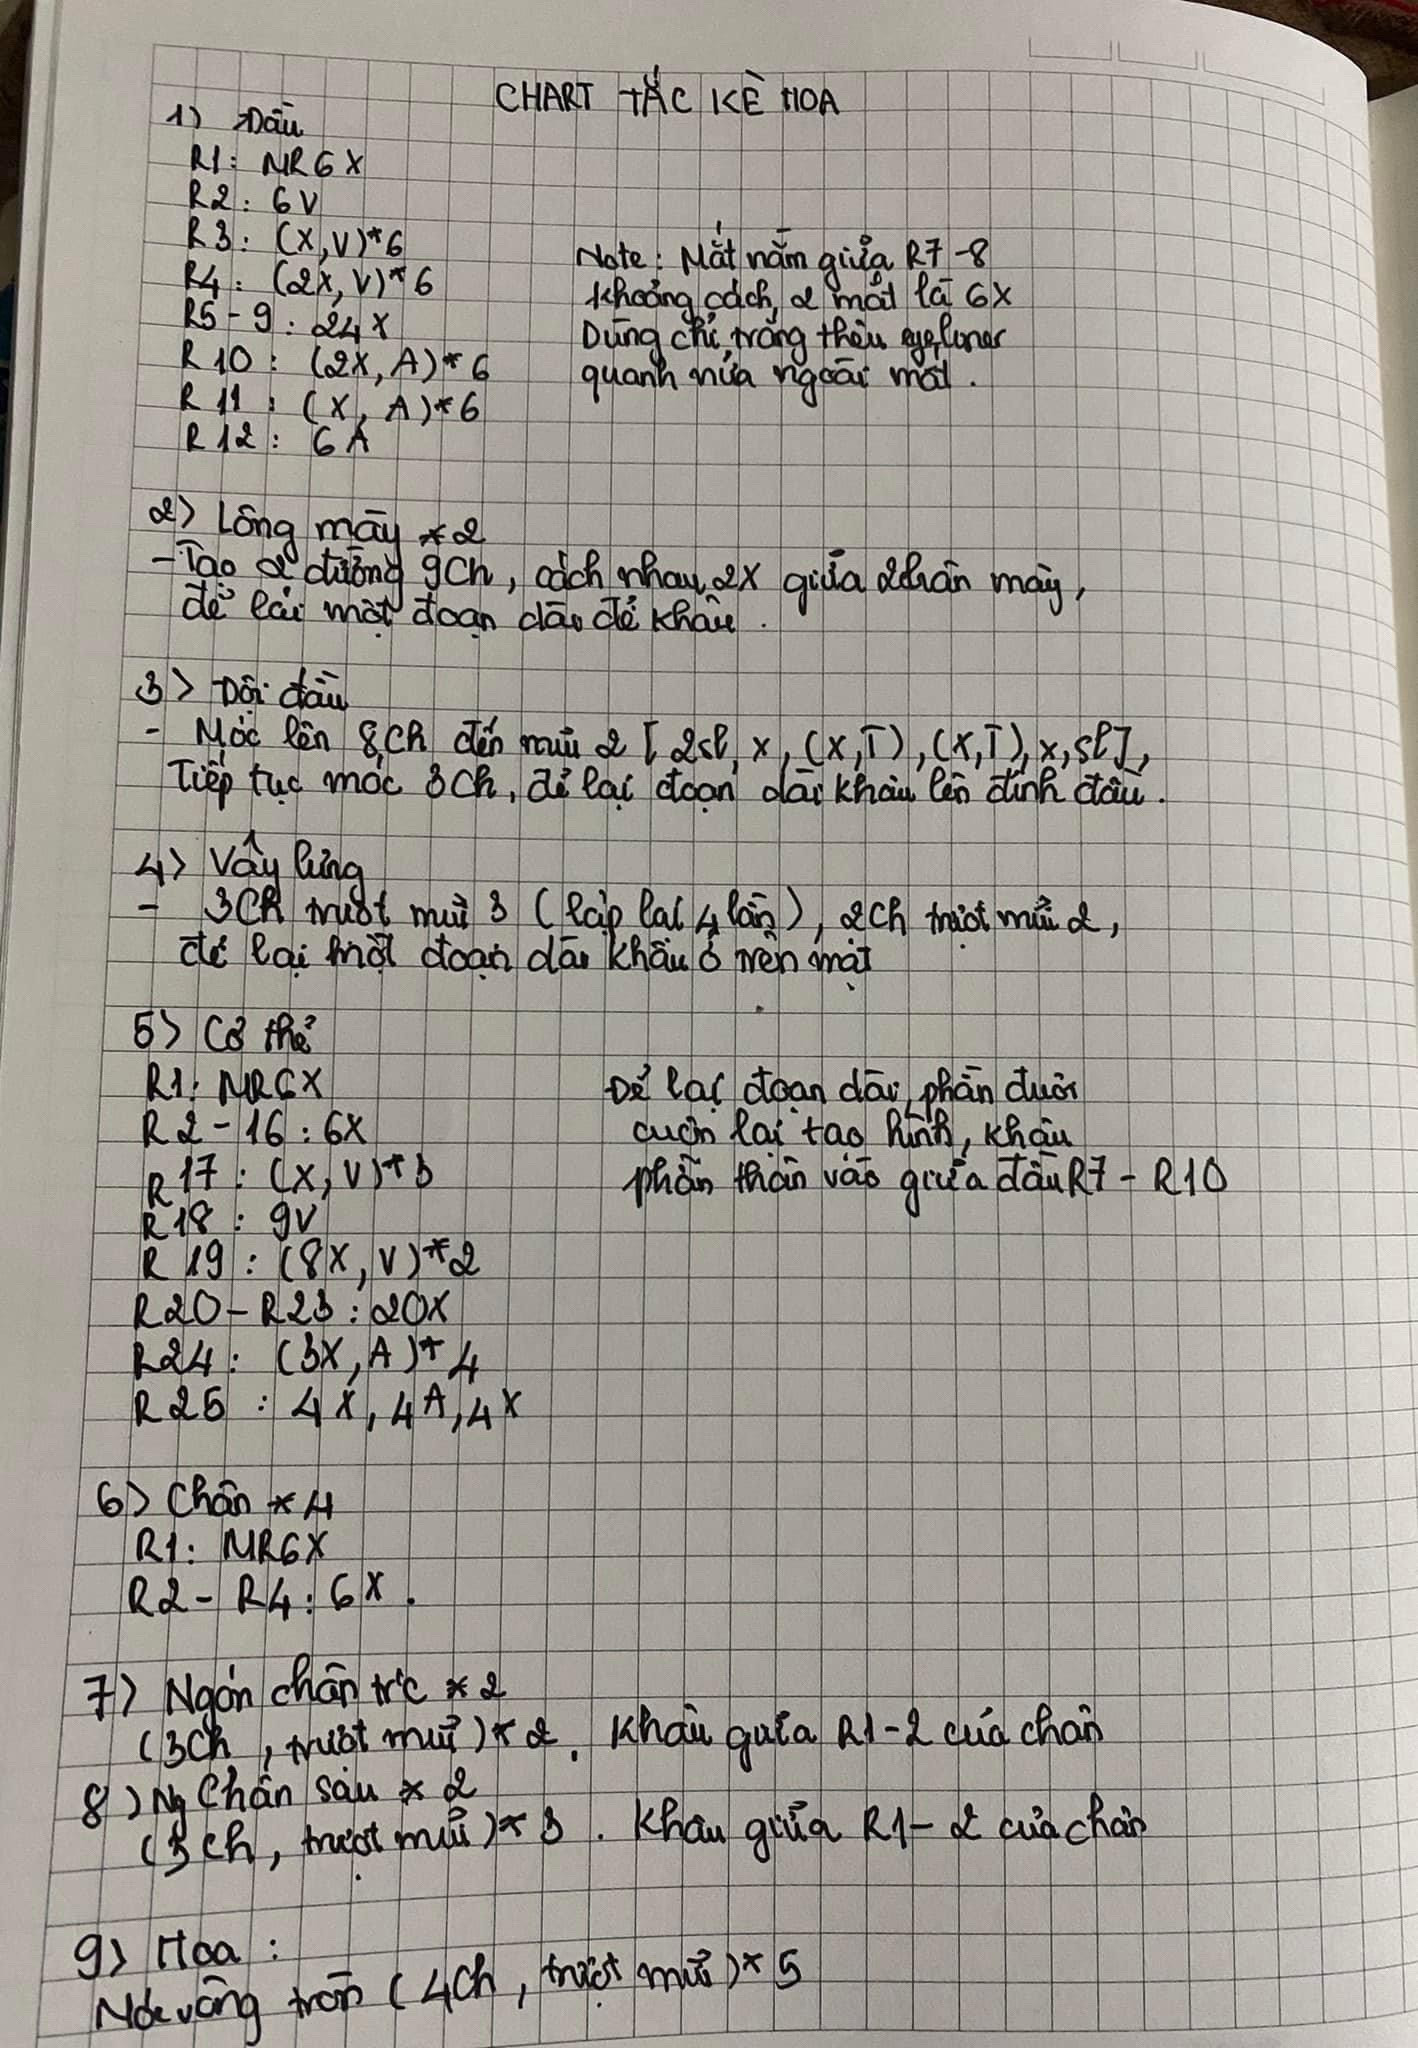 CHART TẮC KÈ HOA
1) Đầu
R1: MR6X
R2: 6V
R3: (X,V)*6
R4: (2X,V)*6
R5-9: 24X
R10: (2X,A)*6
R11: (X,A)*6
R12: 6A
Note: Mắt nằm giữa R7-8
Khoảng cách 2 mắt là 6X
Dùng chỉ trắng thêu eyeliner
quanh nửa ngoài mắt.
2) Lông mày *2
- Tạo 2 đường 9Ch, cách nhau 2X giữa 2 chân mày,
để lại một đoạn dài để khâu.
3) Đội đầu
- Móc lên 8Ch đến mũi 2 [2sl, x, (X,T), (X,T), x, sl],
Tiếp tục móc 3Ch, để lại đoạn dài khâu lên đỉnh đầu.
4) Vây lưng
- 3Ch trượt mũi 3 (lặp lại 4 lần), 2Ch trượt mũi 2,
để lại một đoạn dài khâu ở trên mặt
5) Cơ thể
R1: MR6X
R2-16: 6X
R17: (X,V)*3
R18: 9V
R19: (8X,V)*2
R20-R23: 20X
R24: (3X,A)*4
R25: 4X,4A,4X
Để lại đoạn dài, phần đuôi
cuộn lại tạo hình, khâu
phần thân vào giữa đầu R7-R10
6) Chân *4
R1: MR6X
R2-R4: 6X.
7) Ngón chân trc *2
(3Ch, trượt mũi)*2. Khâu giữa R1-2 của chân
8) Ng Chân sau *2
(3Ch, trượt mũi)*3. Khâu giữa R1-2 của chân
9) Hoa:
Móc vòng tròn (4Ch, trượt mũi)*5